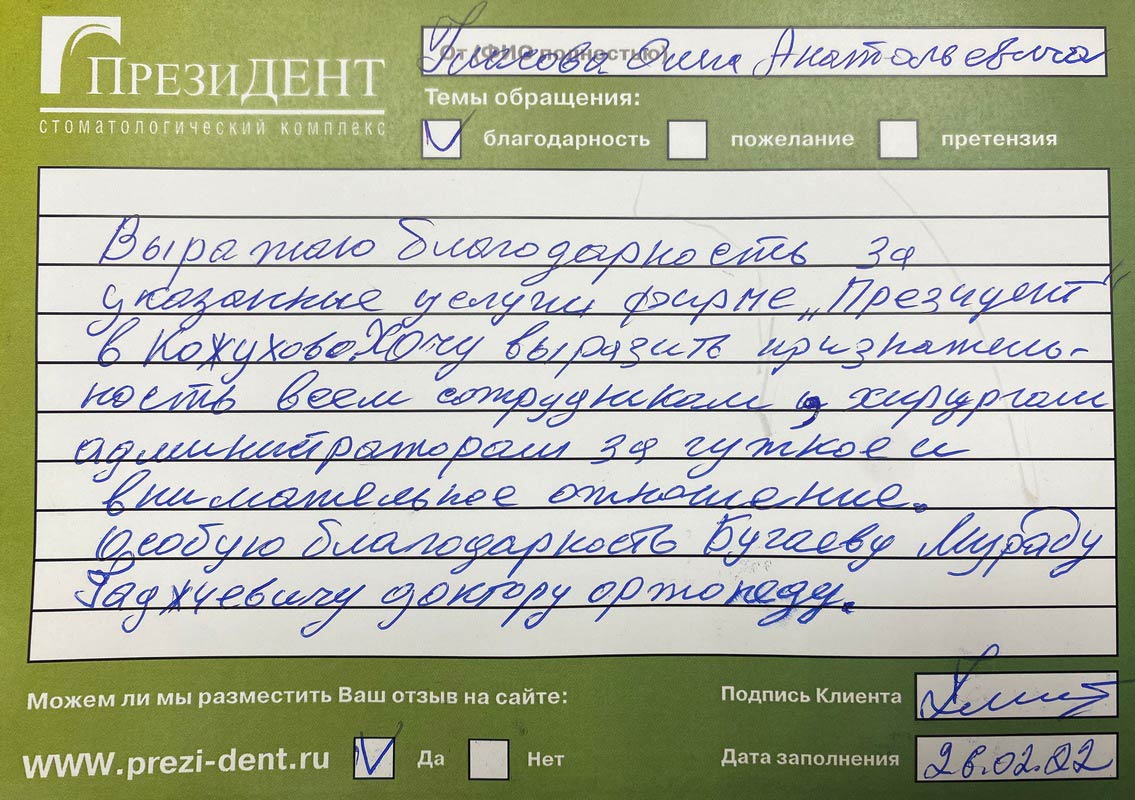 ПРЕЗИДЕНТ
СТОМАТОЛОГИЧЕСКИЙ КОМПЛЕКС
От (ФИО полностью)
Анатольевича
Темы обращения:
благодарность пожелание претензия
Выражаю благодарность за
указанные услуги фирме „Президент"
в Кожухово Хочу выразить признатель-
ность всем сотрудникам, хирургам
администраторам за чуткое и
внимательное отношение.
Особую благодарность Бугаеву Мураду
Гаджиевичу доктору ортопеду.
Можем ли мы разместить Ваш отзыв на сайте:
Подпись Клиента
www.prezi-dent.ru Да Нет
Дата заполнения 26.02.22